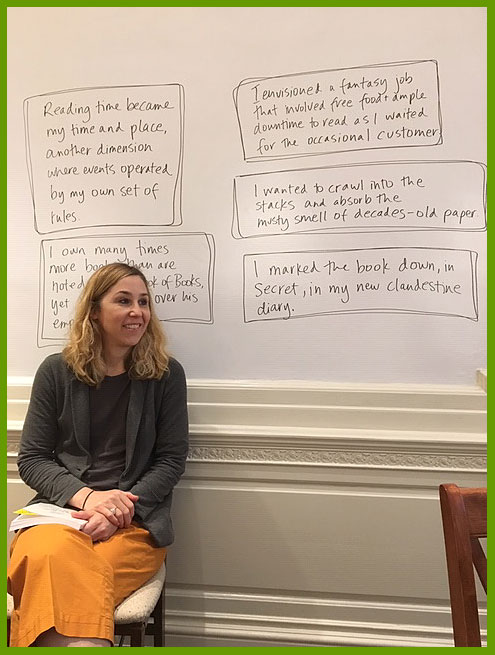 Reading time became
my time and place,
another dimension
where events operated
by my own set of
rules.
I own many times
more than are
noted of Books,
yet over his
I envisioned a fantasy job
that involved free food + ample
downtime to read as I waited
for the occasional customer
I wanted to crawl into the
stacks and absorb the
musty smell of decades-old paper
I marked the book down, in
Secret, in my new clandestine
diary.